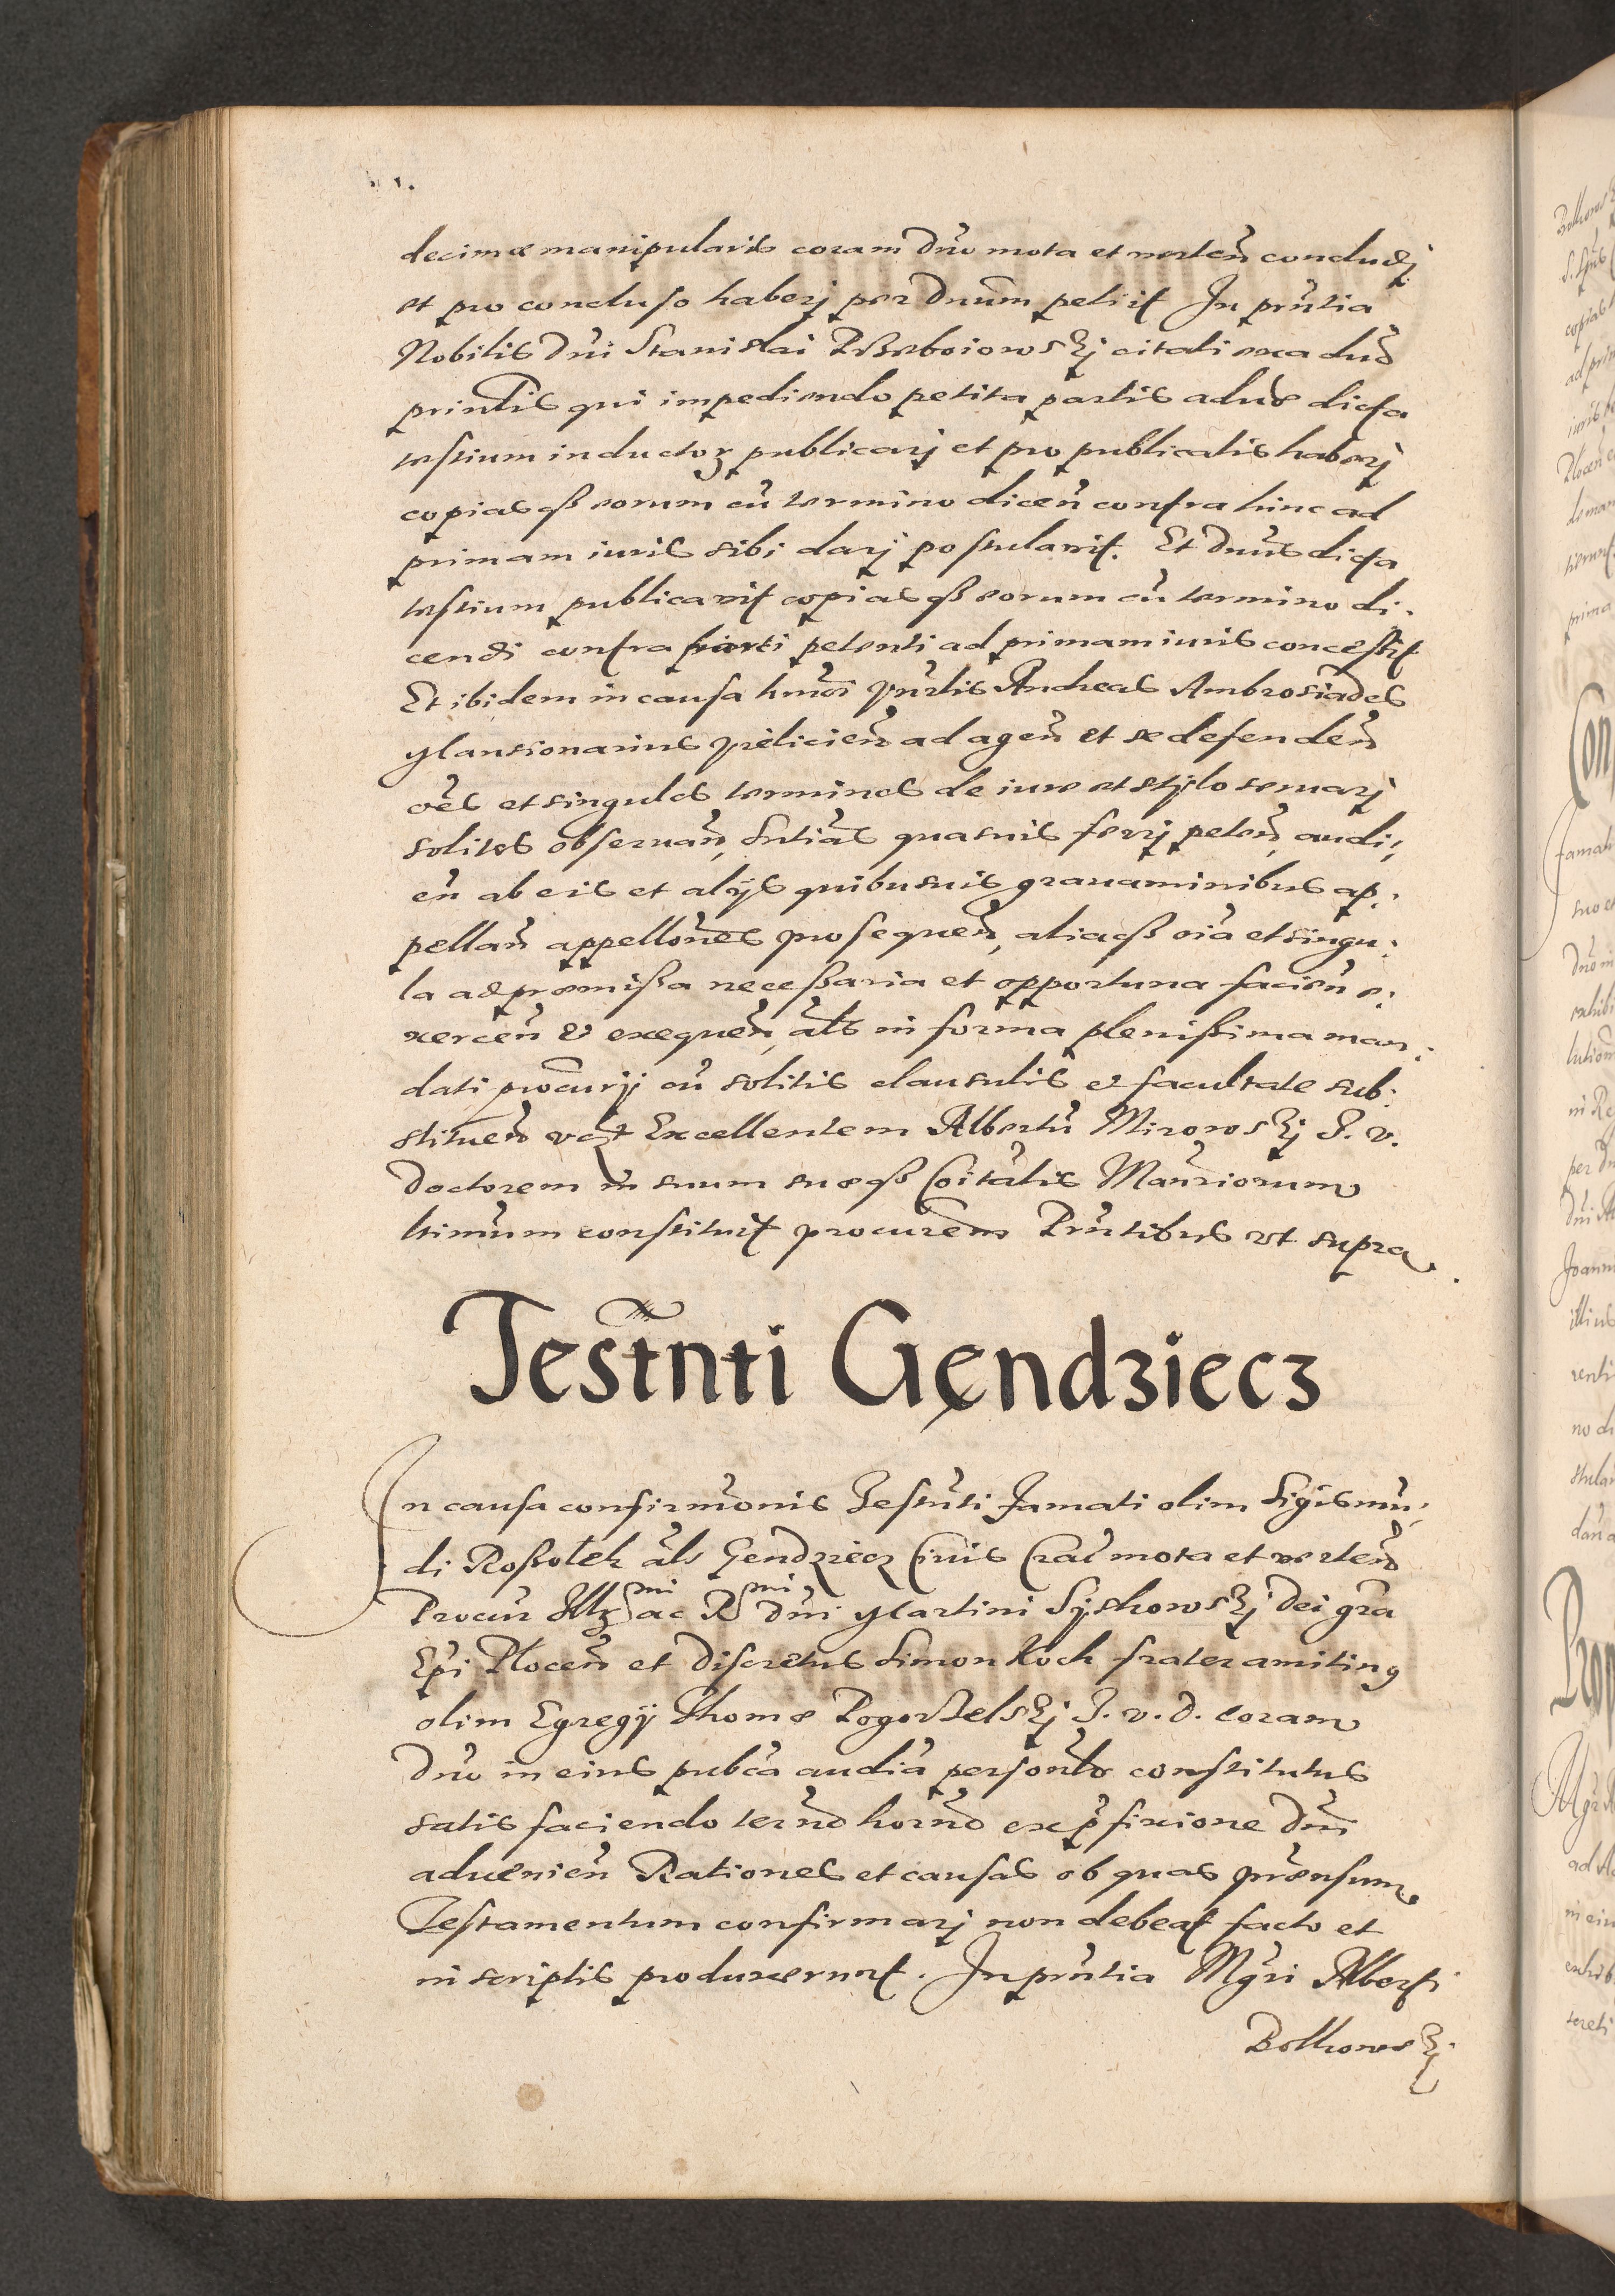 decimæ manipularis coram Dno mota et verten concludj
et pro concluso haberj per Dnum petiit In pntia
Nobilis Dni Stanislai citati ex ad
principalis qui impediendo petita partis aduæ dicta
testium inductor publicarj et pro publicatis haberj
copias qß eorum cū termino dicen contra hinc ad
primam iuris sibi darj postulavit. Et Dnus dicta
testium publicavit copias qß eorum cū termino di-
cendi contra parti petenti ad primam iuris concessit
Et ibidem in causa hmōi Andreas Ambrosiades
Mansionarius ad agen et se defenden
oēs et singulos terminos de iure et stylo seruarj
solitos obseruan, sntias quasuis ferrj peten, audi-
en ab eis et alijs quibusuis grauaminibus ap-
pellan appellones prosequen, aliaqß oīa et singu-
la ad præmißa neceßaria et opportuna facien e-
xercen & exequen, als in forma plenißima man-
dati procurij cū solitis clausulis et facultate sub-
stituen Excellentem Albertū Mirowskj J. V.
Doctorem in suum suæqß Cōitatis Mansriorum
ltimum constituit procurem Pntibus vt supra.
Testnti Gęndziecz
In causa confirmonis Testnti Famati olim Sigismun-
di Roßołek als Gendziecz Ciuis Crac mota et verten
Procur Illmi ac Rmi Dni Martini Syskowskj Dei gra
Epi Plocen et Discretus Simon Koch frater amitin9
olim Egregij Thomæ Pogorzelskj J. V. D. coram
Dno in eius pubca audia personlr constitutus
satisfaciendo termo hormo ex pfixione Dni
aduenien Rationes et causas ob quas præinsum
Testamentum confirmarj non debeat facto et
in scriptis produxerunt. In pntia Mgri Alberti
Bolkowskj